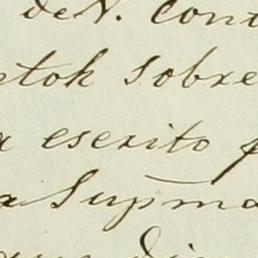 de N. Cont
ntok sobre
a escrito p
a Supma